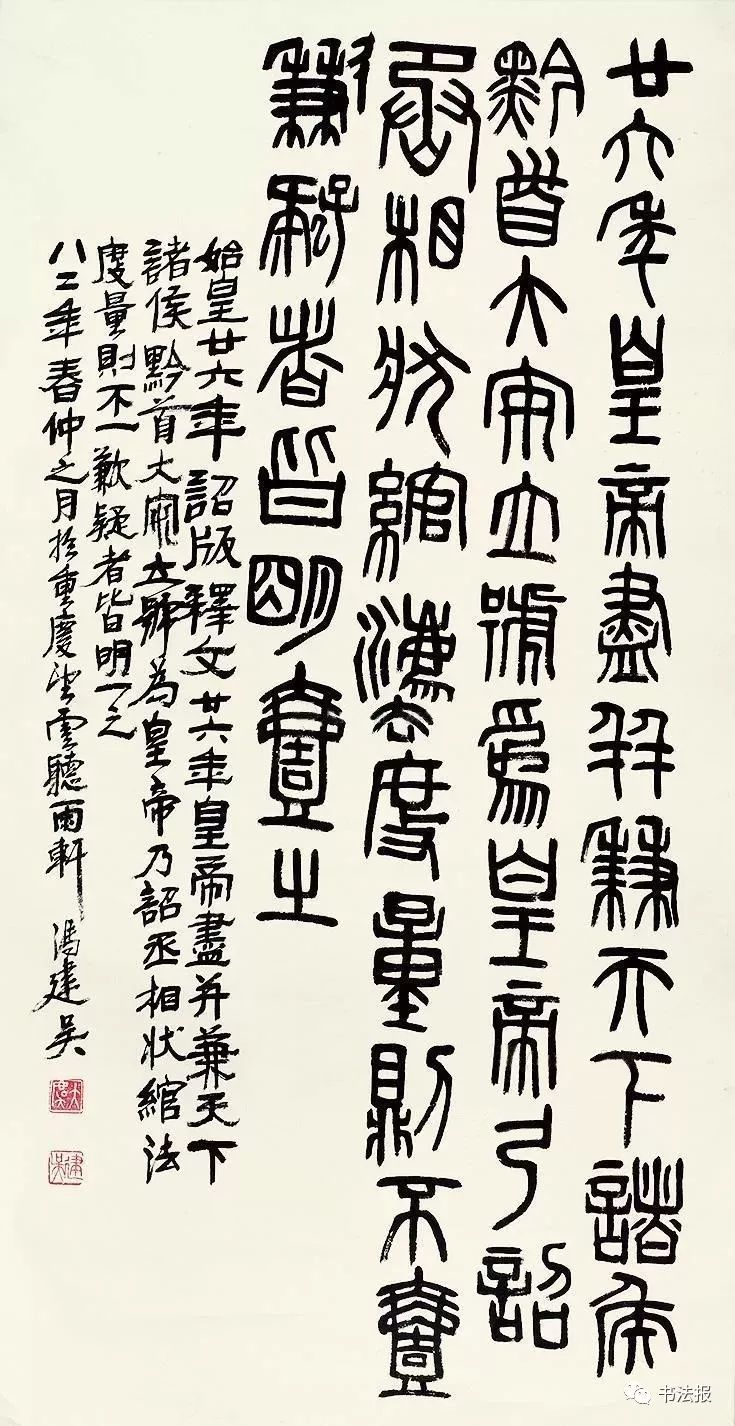 廿六年皇帝盡并兼天下諸侯
黔首大安立號為皇帝乃詔
丞相狀綰灋度量則不壹
歉疑者皆明壹之
始皇廿六年詔版釋文廿六年皇帝盡并兼天下
諸侯黔首大安立號為皇帝乃詔丞相狀綰法
度量則不一歉疑者皆明一之
八二年春仲之月於重慶望雲聽雨軒 馮建吳
书法报